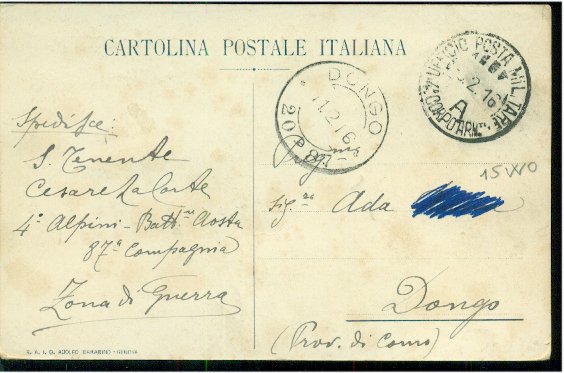 CARTOLINA POSTALE ITALIANA
UFFICIO POSTA MILITARE
2.16
A
CORPO ARM
DONGO
11.2.16
20
15WO
Spedisce:
S. Tenente
Cesare La Conte
4º Alpini - Battne Aosta
87ª Compagnia
Zona di Guerra
Sig.na Ada
Dongo
(Prov. di Como)
S. A. I. G. ADOLFO BARABINO - GENOVA